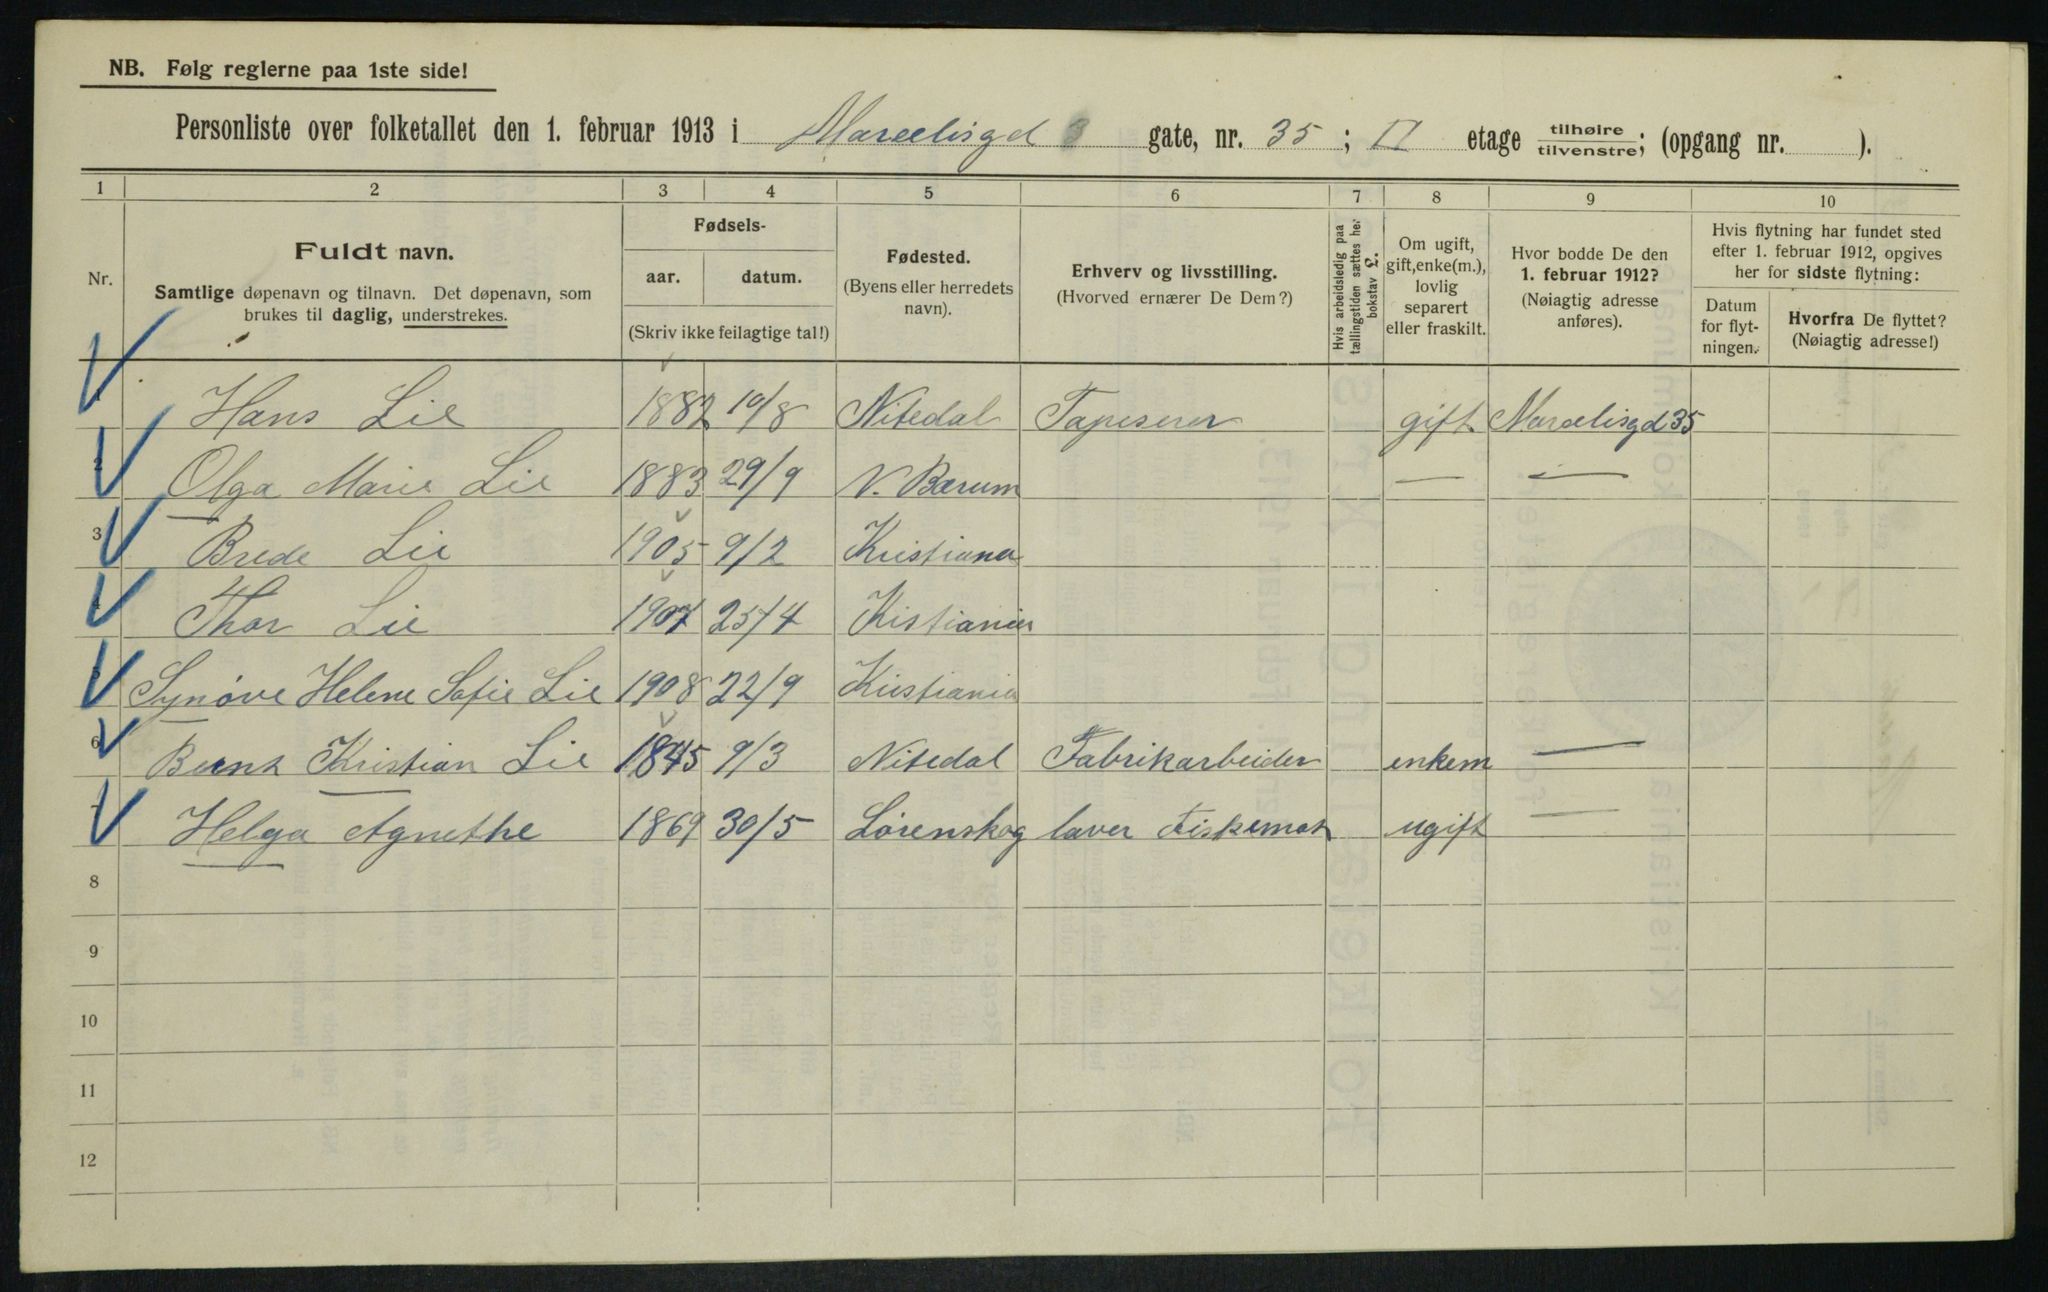 NB. Følg reglerne paa 1ste side!
Personliste over folketallet den 1. februar 1913 i Marcelisgd gate, nr. 35 ; II etage tilhøire tilvenstre; (opgang nr. ).
1 2 3 4 5 6 7 8 9 10
Nr.
Fuldt navn.
Samtlige døpenavn og tilnavn. Det døpenavn, som
brukes til daglig, understrekes.
Fødsels-
aar. datum.
(Skriv ikke feilagtige tal!)
Fødested.
(Byens eller herredets
navn).
Erhverv og livsstilling.
(Hvorved ernærer De Dem?)
Hvis arbeidsledig paa
tællingstiden sættes her
bokstav L.
Om ugift,
gift, enke(m.),
lovlig
separert
eller fraskilt.
Hvor bodde De den
1. februar 1912?
(Nøiagtig adresse
anføres).
Hvis flytning har fundet sted
efter 1. februar 1912, opgives
her for sidste flytning:
Datum
for flyt-
ningen.
Hvorfra De flyttet?
(Nøiagtig adresse!)
1 Hans Lie 1882 10/8 Nitedal Tapeserer gift Marcelisgd 35
2 Olga Marie Lie 1883 29/9 V. Bærum — —
3 Brede Lie 1905 9/2 Kristiana
4 Thor Lie 1907 25/4 Kistiania
5 Synøve Helene Sofie Lie 1908 22/9 Kristiania
6 Bernt Kristian Lie 1845 9/3 Nitedal Fabrikarbeider enkem —
7 Helga Agnethe 1869 30/5 Lørenskog laver Fiskemat ugift —
8
9
10
11
12